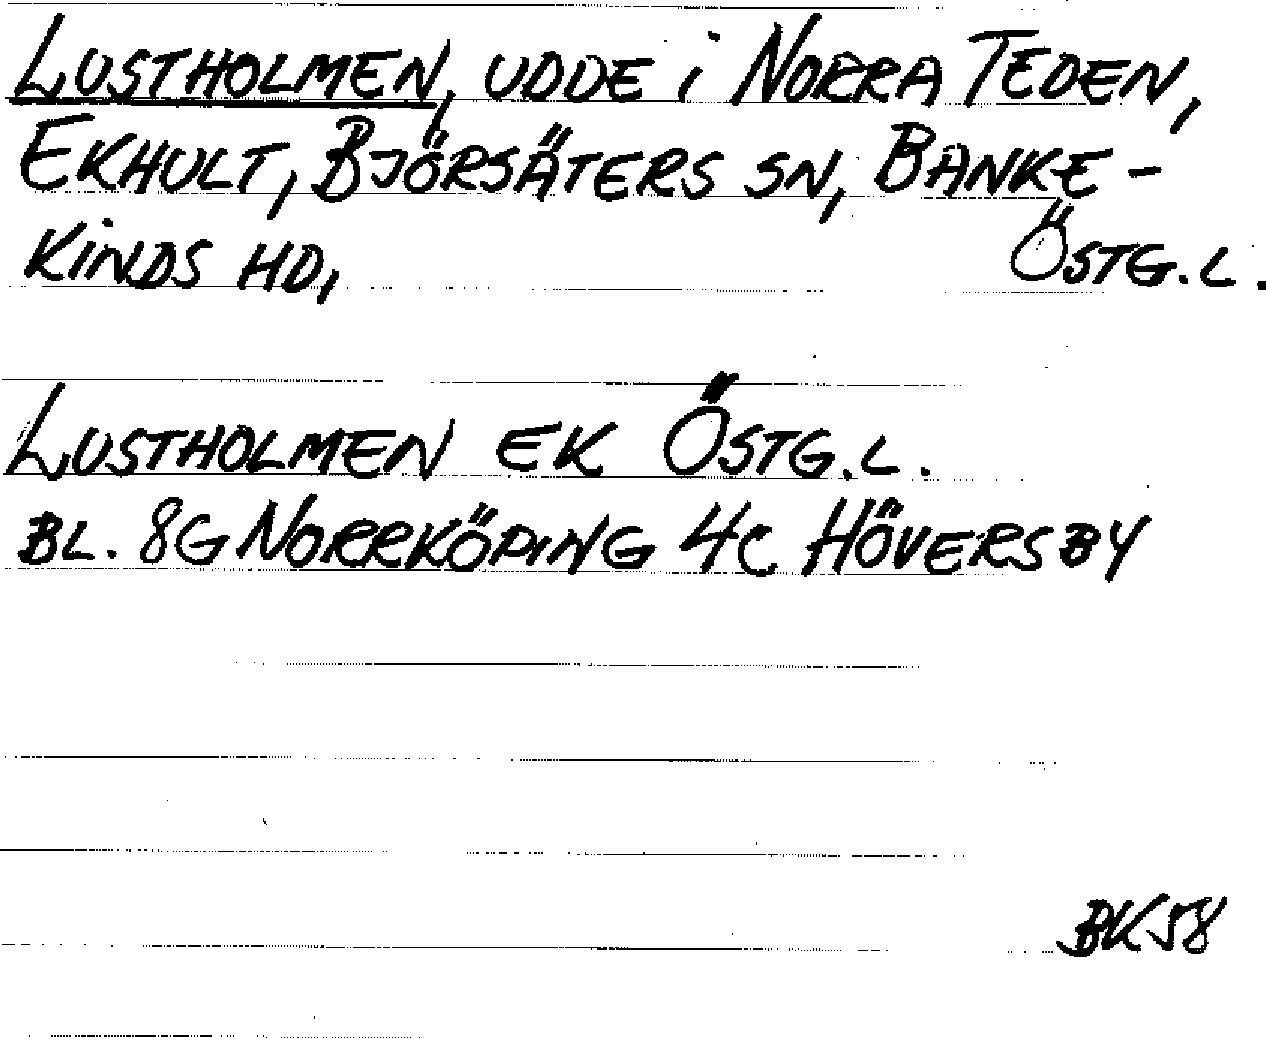 LUSTHOLMEN, UDDE i NORRA TEDEN,
EKHULT, BJÖRSÄTERS SN, BANKE-
KINDS HD, ÖSTG. L.
LUSTHOLMEN EK ÖSTG. L.
BL. 8G NORRKÖPING 4C HÖVERSBY
BK58